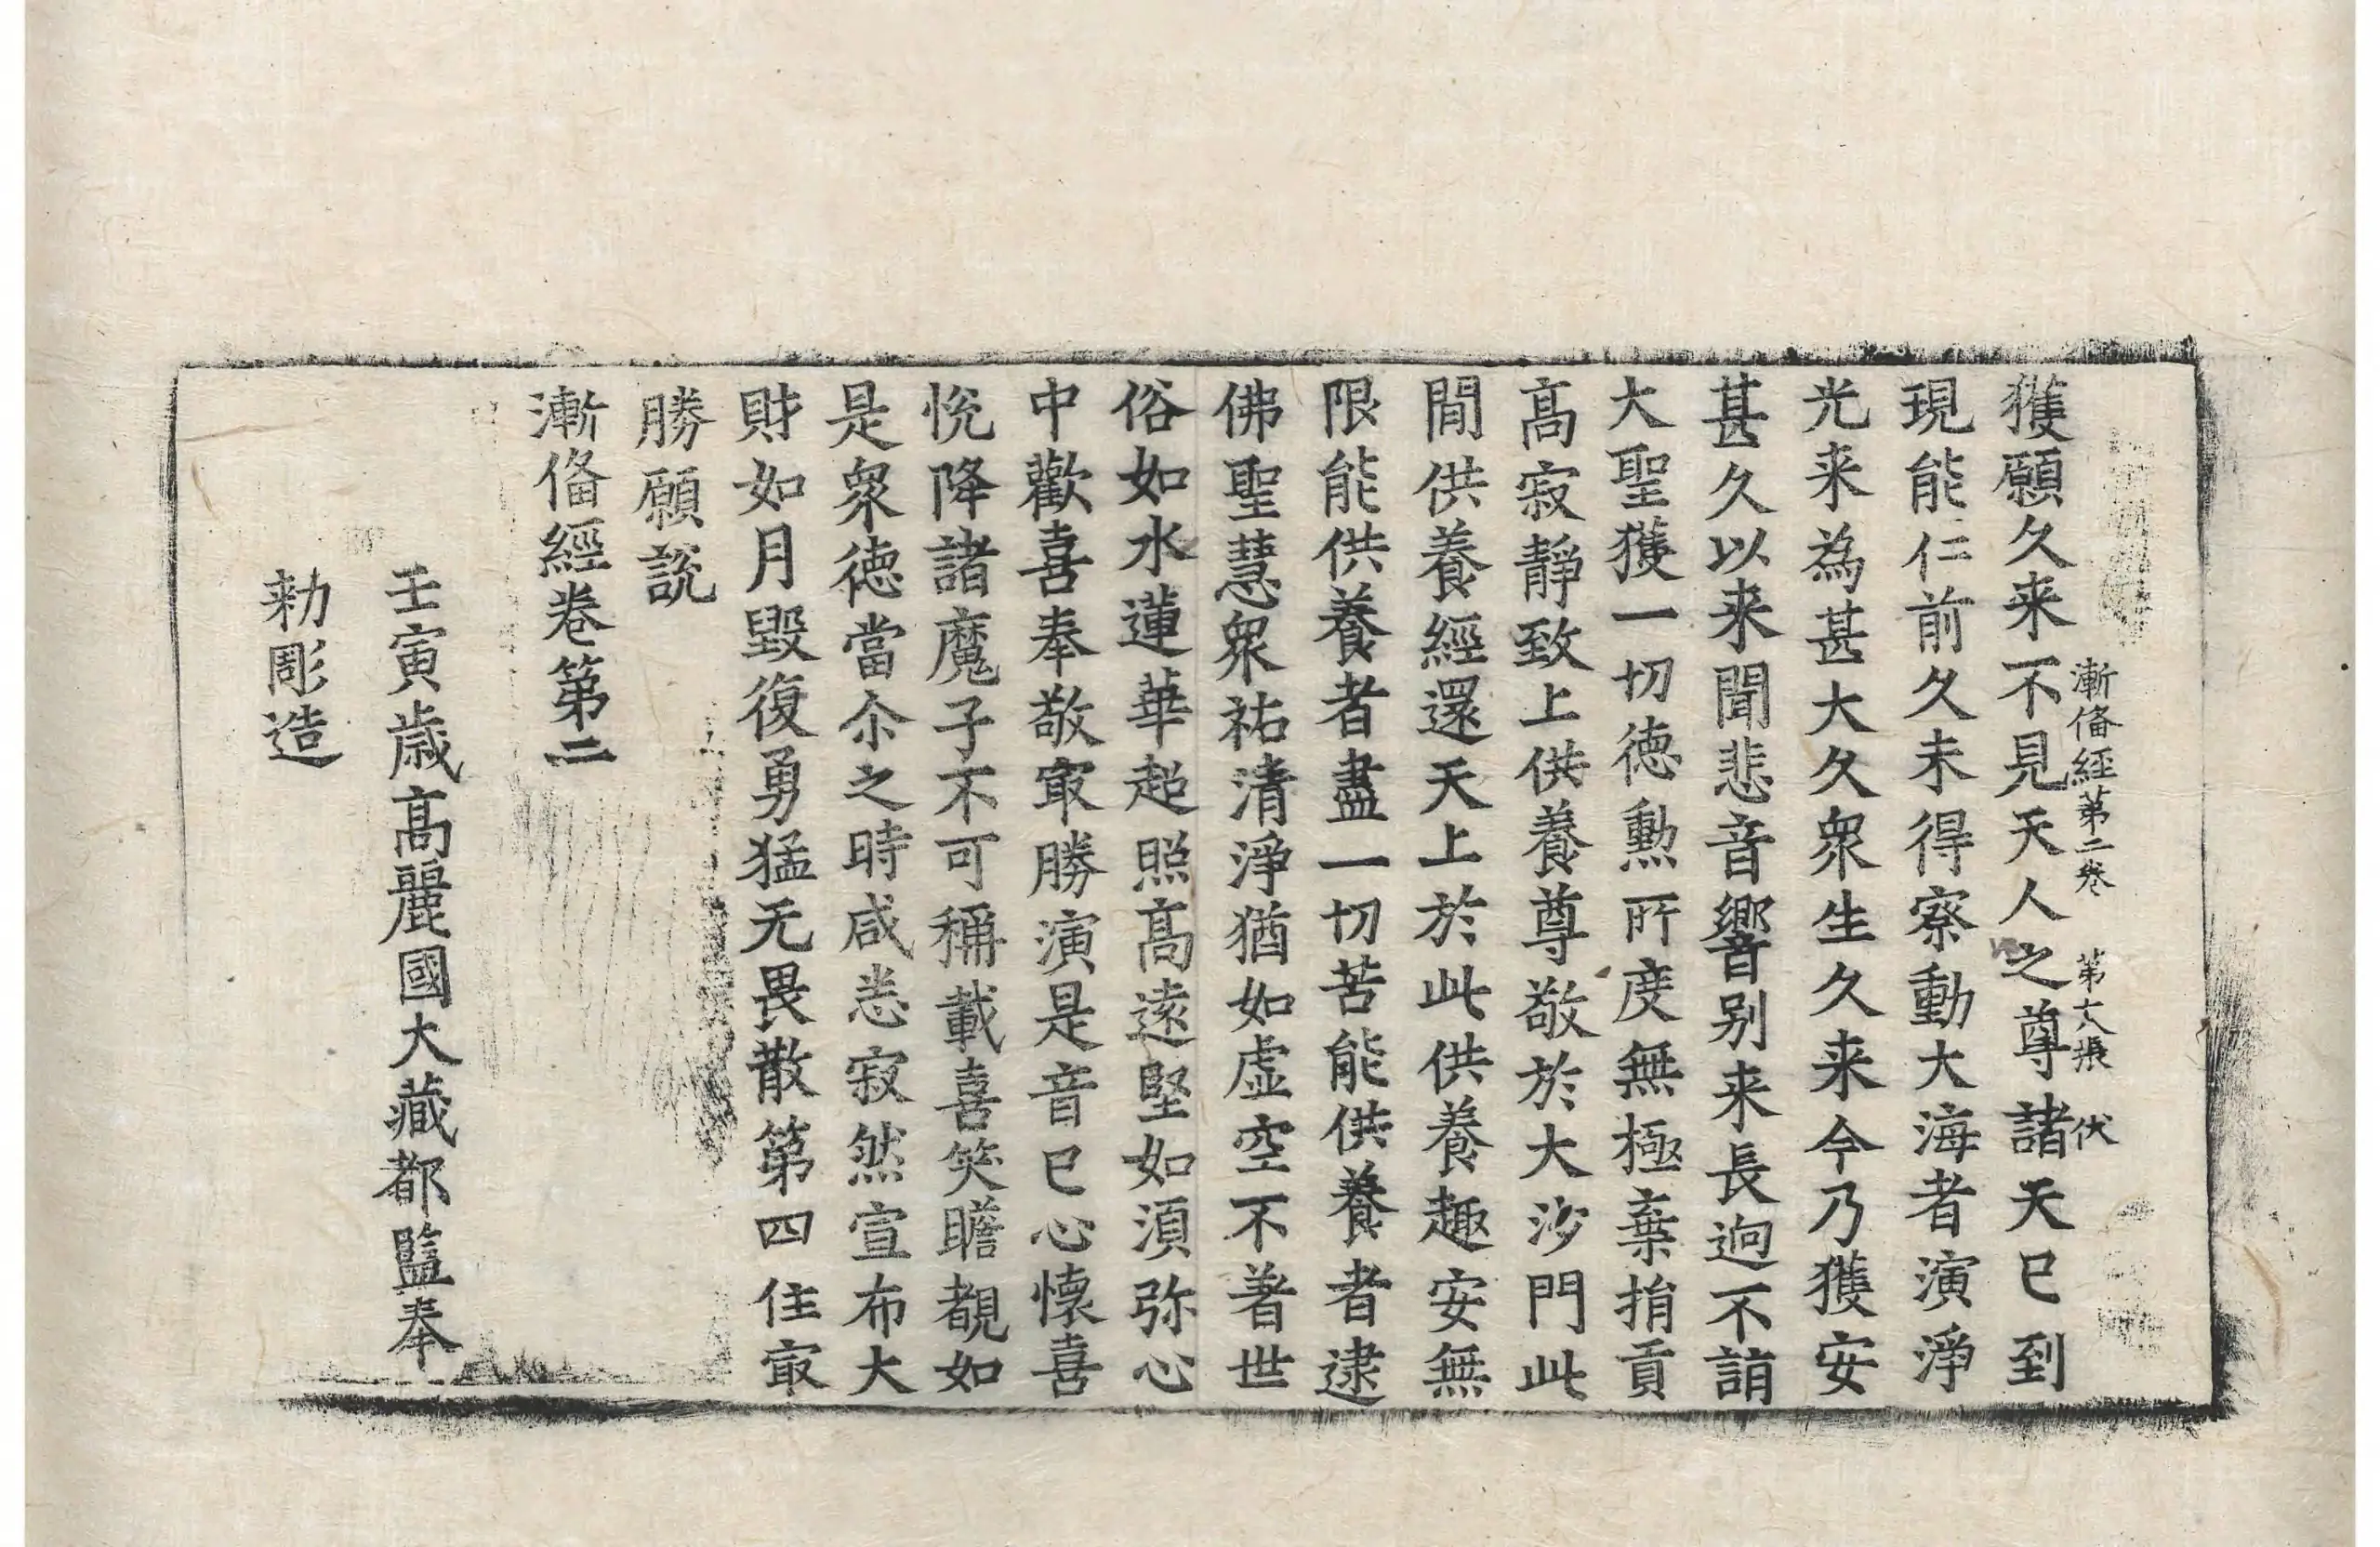 漸俻經第二卷 第六張 伏
獲願久来不見天人之尊諸天已到
現能仁前久未得察動大海者演淨
光来為甚大久衆生久来今乃獲安
甚久以来聞悲音響别来長逈不詣
大聖獲一切徳勲所度無極棄捐貢
髙寂靜致上供養尊敬於大沙門此
閒供養經還天上於此供養趣安無
限能供養者盡一切苦能供養者逮
佛聖慧衆祐清淨猶如虚空不著世
俗如水蓮華超照髙遠堅如湏弥心
中歡喜奉敬㝡勝演是音已心懐喜
悅降諸魔子不可稱載喜笑瞻覩如
是衆徳當尒之時咸悉寂然宣布大
財如月毀復勇猛无畏散第四住㝡
勝願說
漸俻經卷第二
壬寅歳髙麗國大藏都監奉
勑彫造